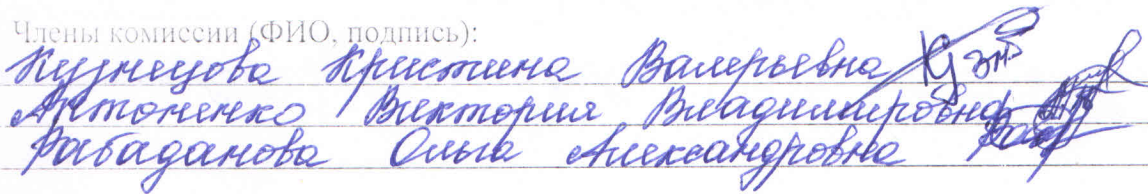 Члены комиссии (ФИО, подпись):
Кузнецова Кристина Валерьевна
Антоненко Виктория Владимировна
Рабаданова Ольга Александровна